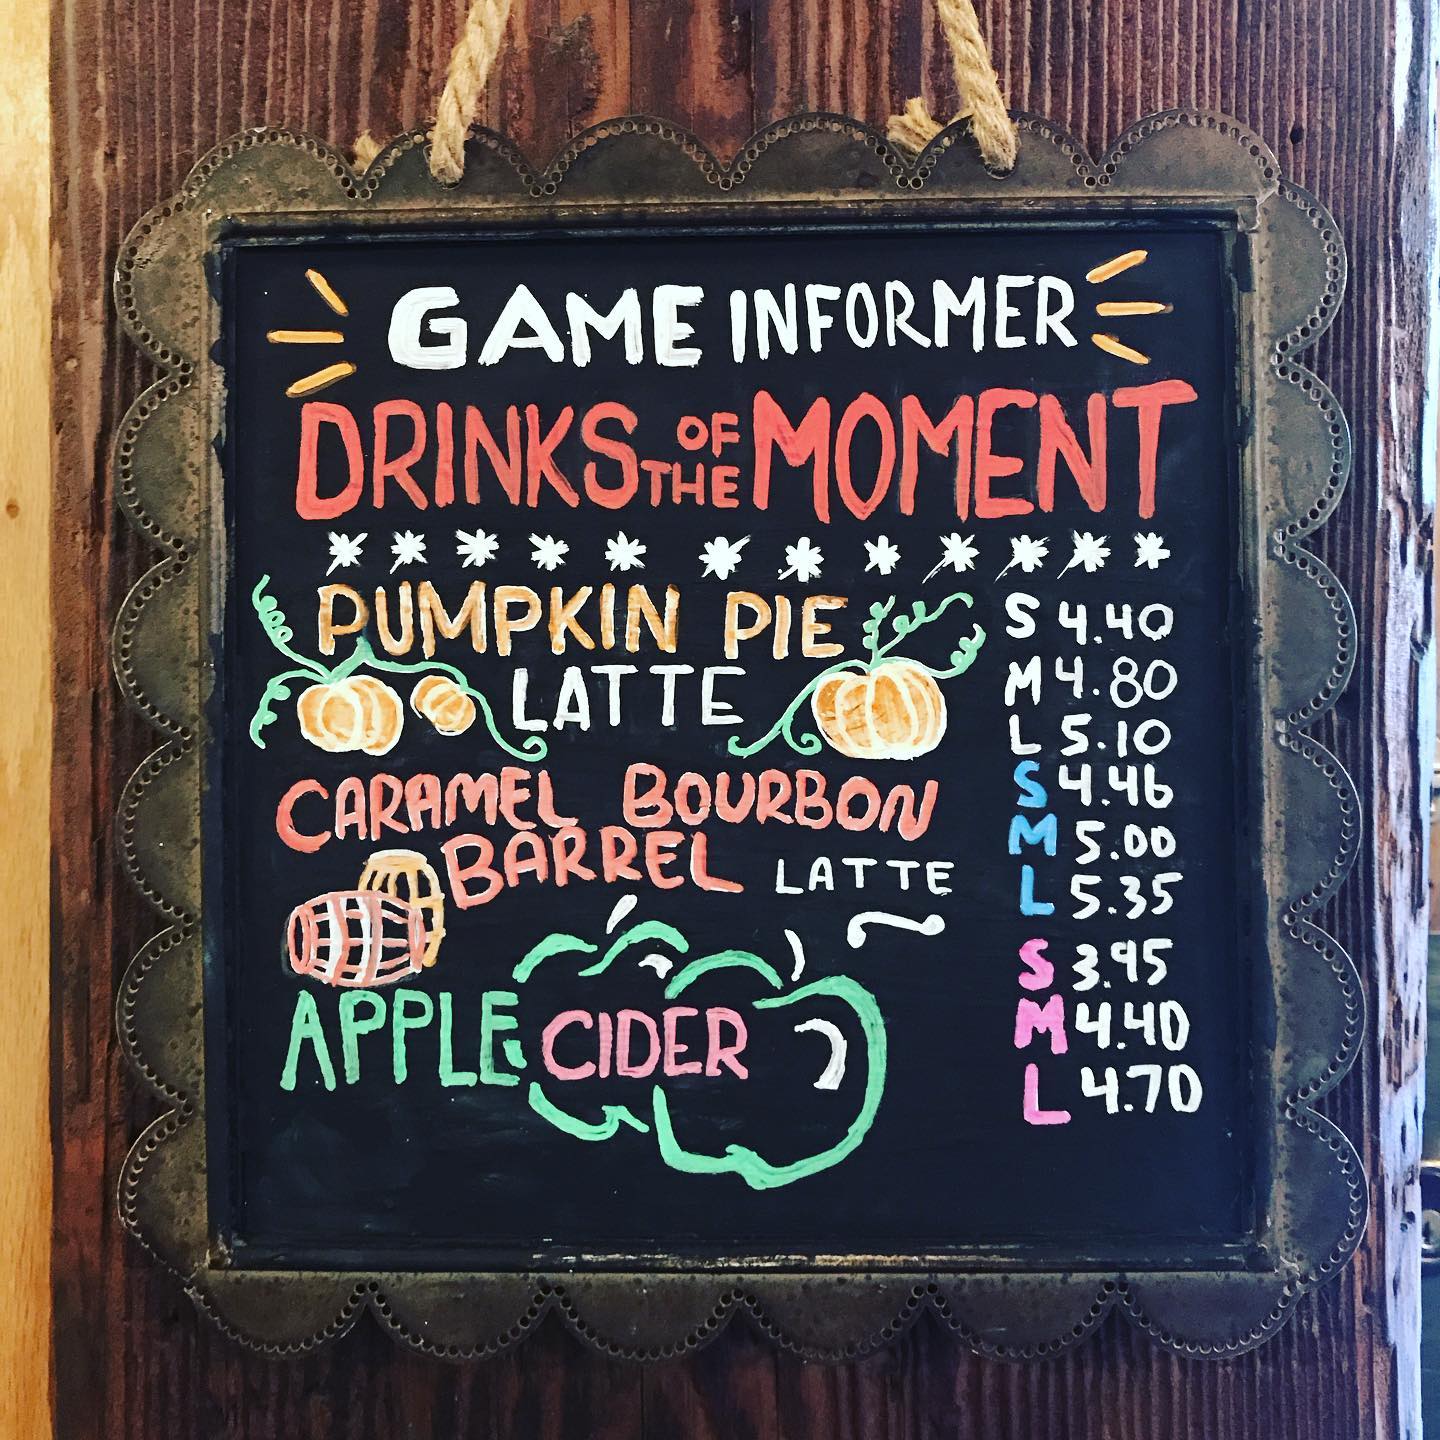 GAME INFORMER
DRINKS OF THE MOMENT
PUMPKIN PIE
LATTE
S 4.40
M 4.80
L 5.10
CARAMEL BOURBON
BARREL LATTE
S 4.46
M 5.00
L 5.35
APPLE CIDER
S 3.95
M 4.40
L 4.70